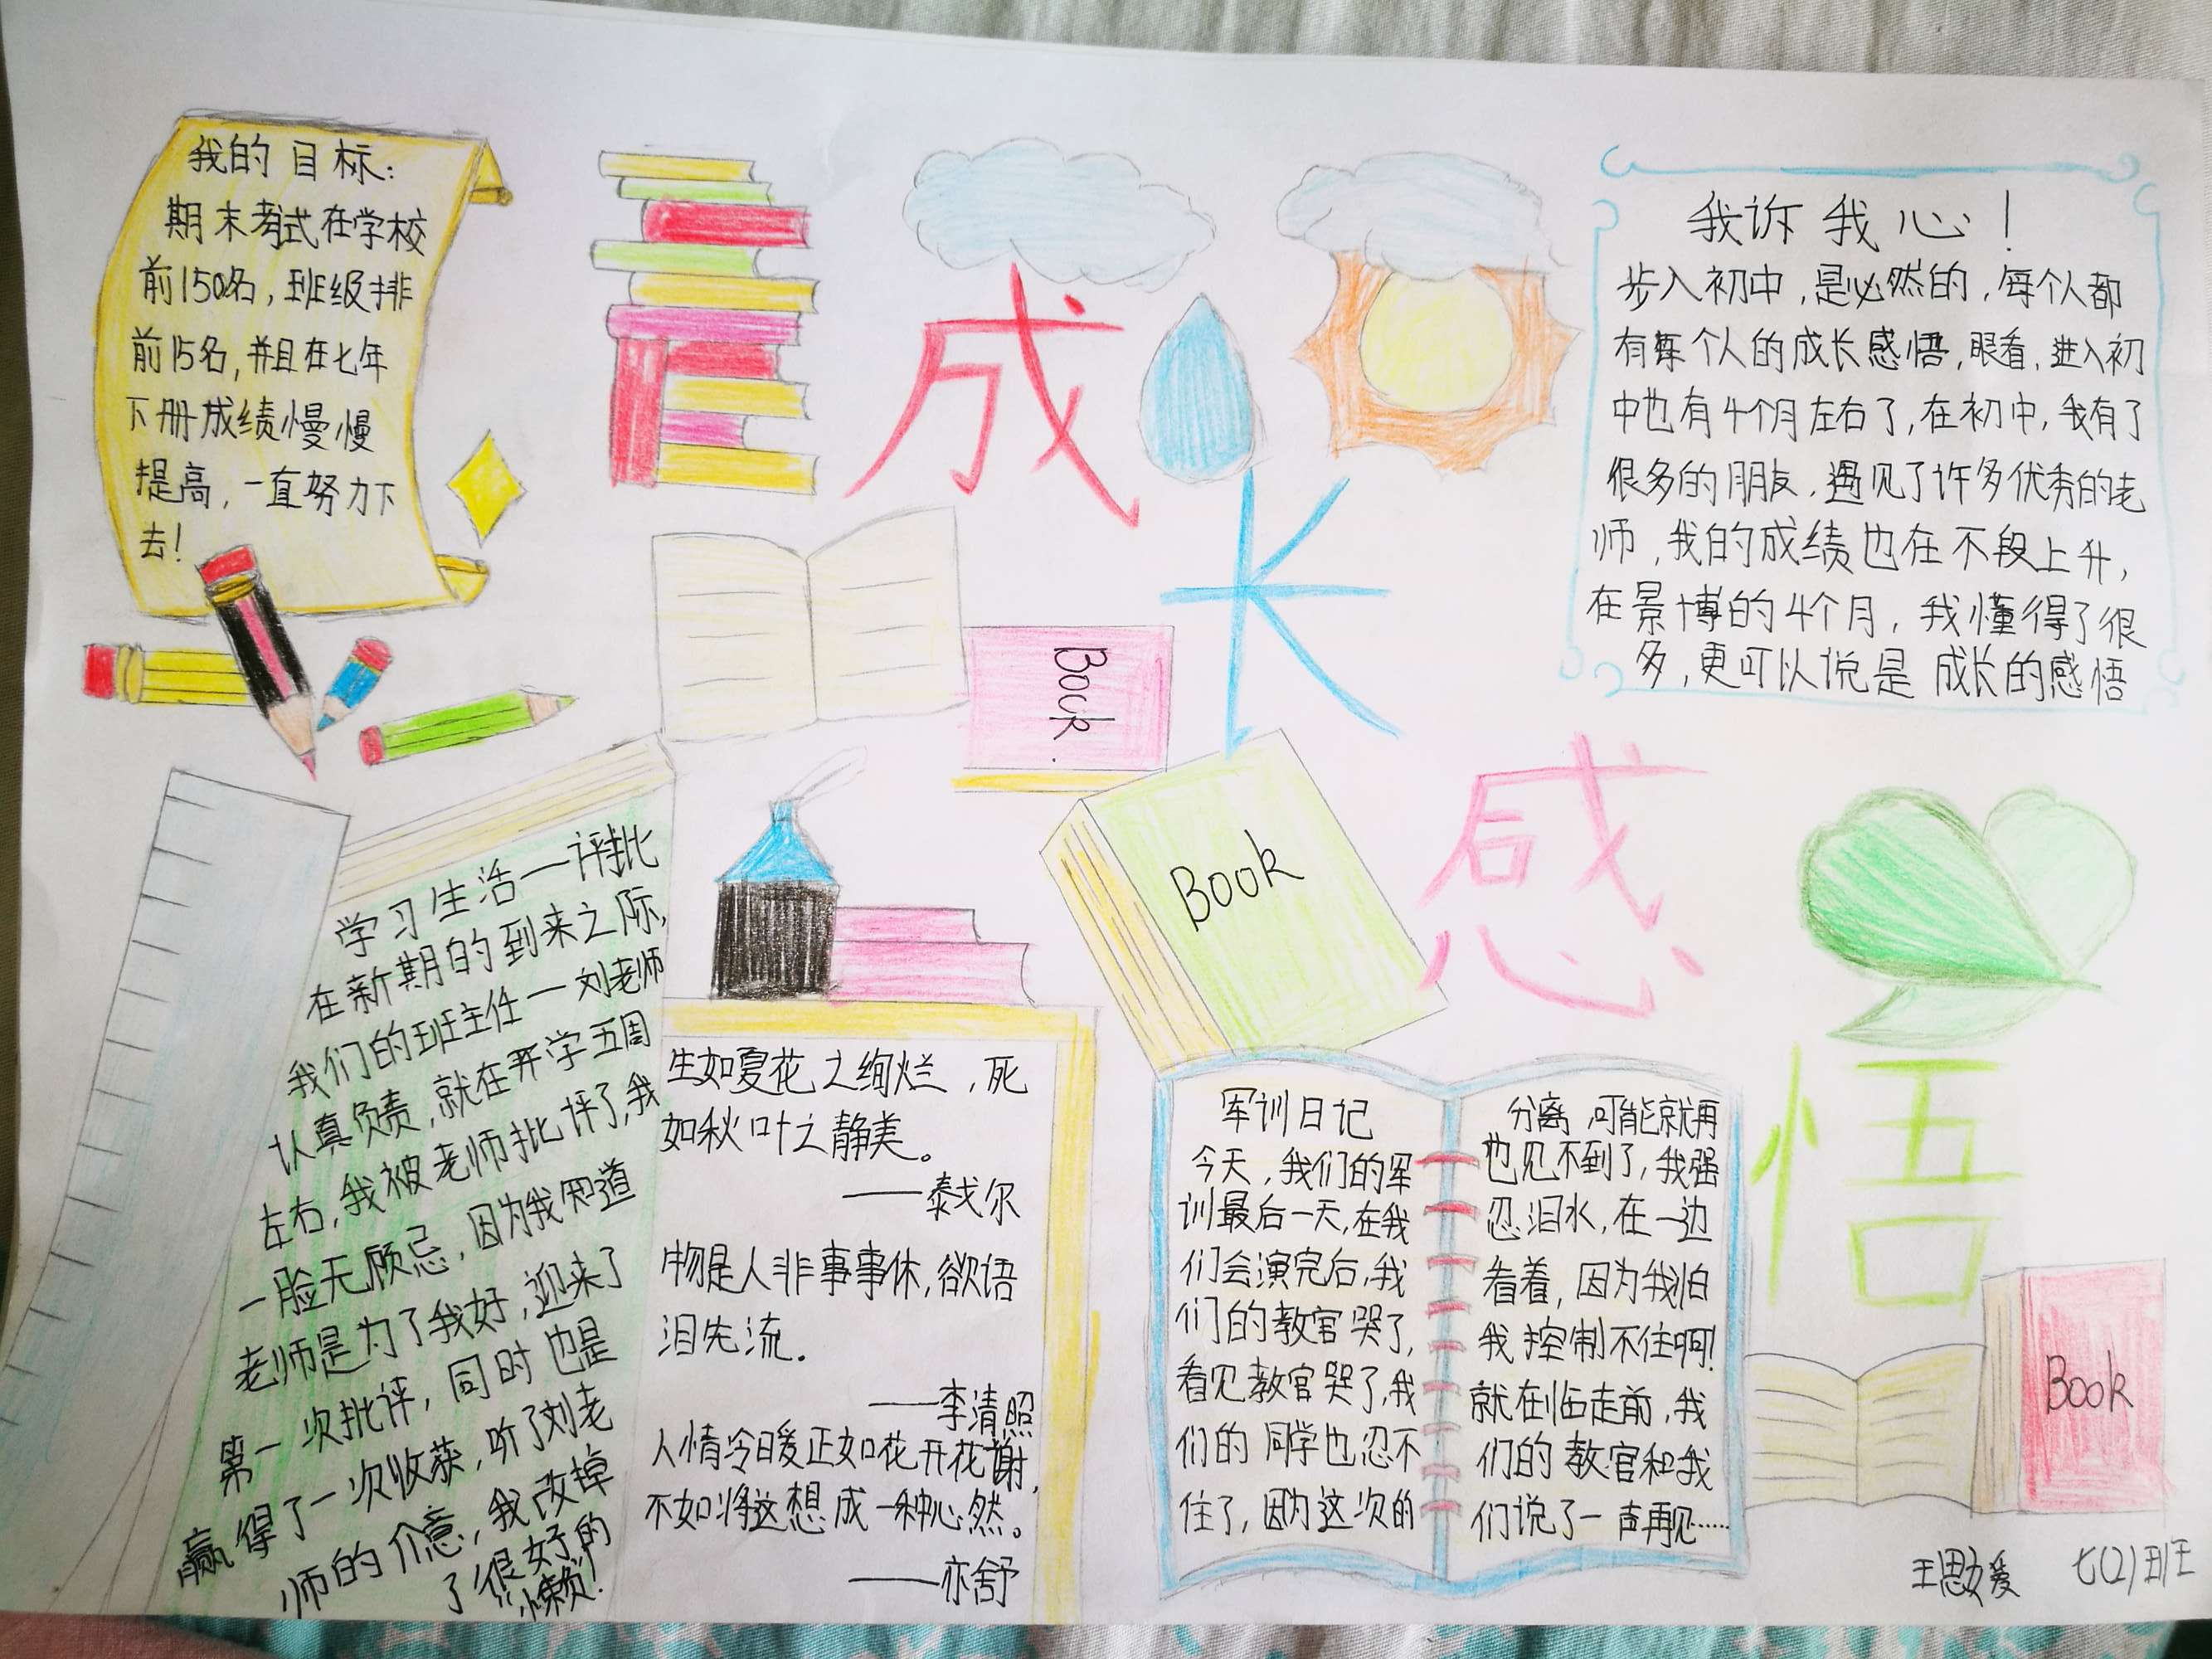 我的目标：
期末考试在学校
前150名，班级排
前15名，并且在七年
下册成绩慢慢
提高，一直努力下
去！
成
长
感
悟
我诉我心！
步入初中，是必然的，每个人都
有每个人的成长感悟，眼看，进入初
中也有4个月左右了，在初中，我有了
很多的朋友，遇见了许多优秀的老
师，我的成绩也在不段上升，
在景博的4个月，我懂得了很
多，更可以说是成长的感悟
Book
Book
学习生活一评批
在新期的到来之际，
我们的班主任一刘老师
认真负责，就在开学五周
左右，我被老师批评了，我
一脸无顾忌，因为我知道
老师是为了我好，迎来了
第一次批评，同时也是
赢得了一次收获，听了刘老
师的介意，我改掉
了很好的
懒！
生如夏花之绚烂，死
如秋叶之静美。
——泰戈尔
物是人非事事休，欲语
泪先流。
——李清照
人情冷暖正如花开花谢，
不如将这想成一种心然。
——亦舒
军训日记
今天，我们的军
训最后一天，在我
们会演完后，我
们的教官哭了，
看见教官哭了，我
们的同学也忍不
住了，因为这次的
分离，可能就再
也见不到了，我强
忍泪水，在一边
看着，因为我怕
我控制不住啊！
就在临走前，我
们的教官和我
们说了一声再见……
Book
王思爱 七(2)班